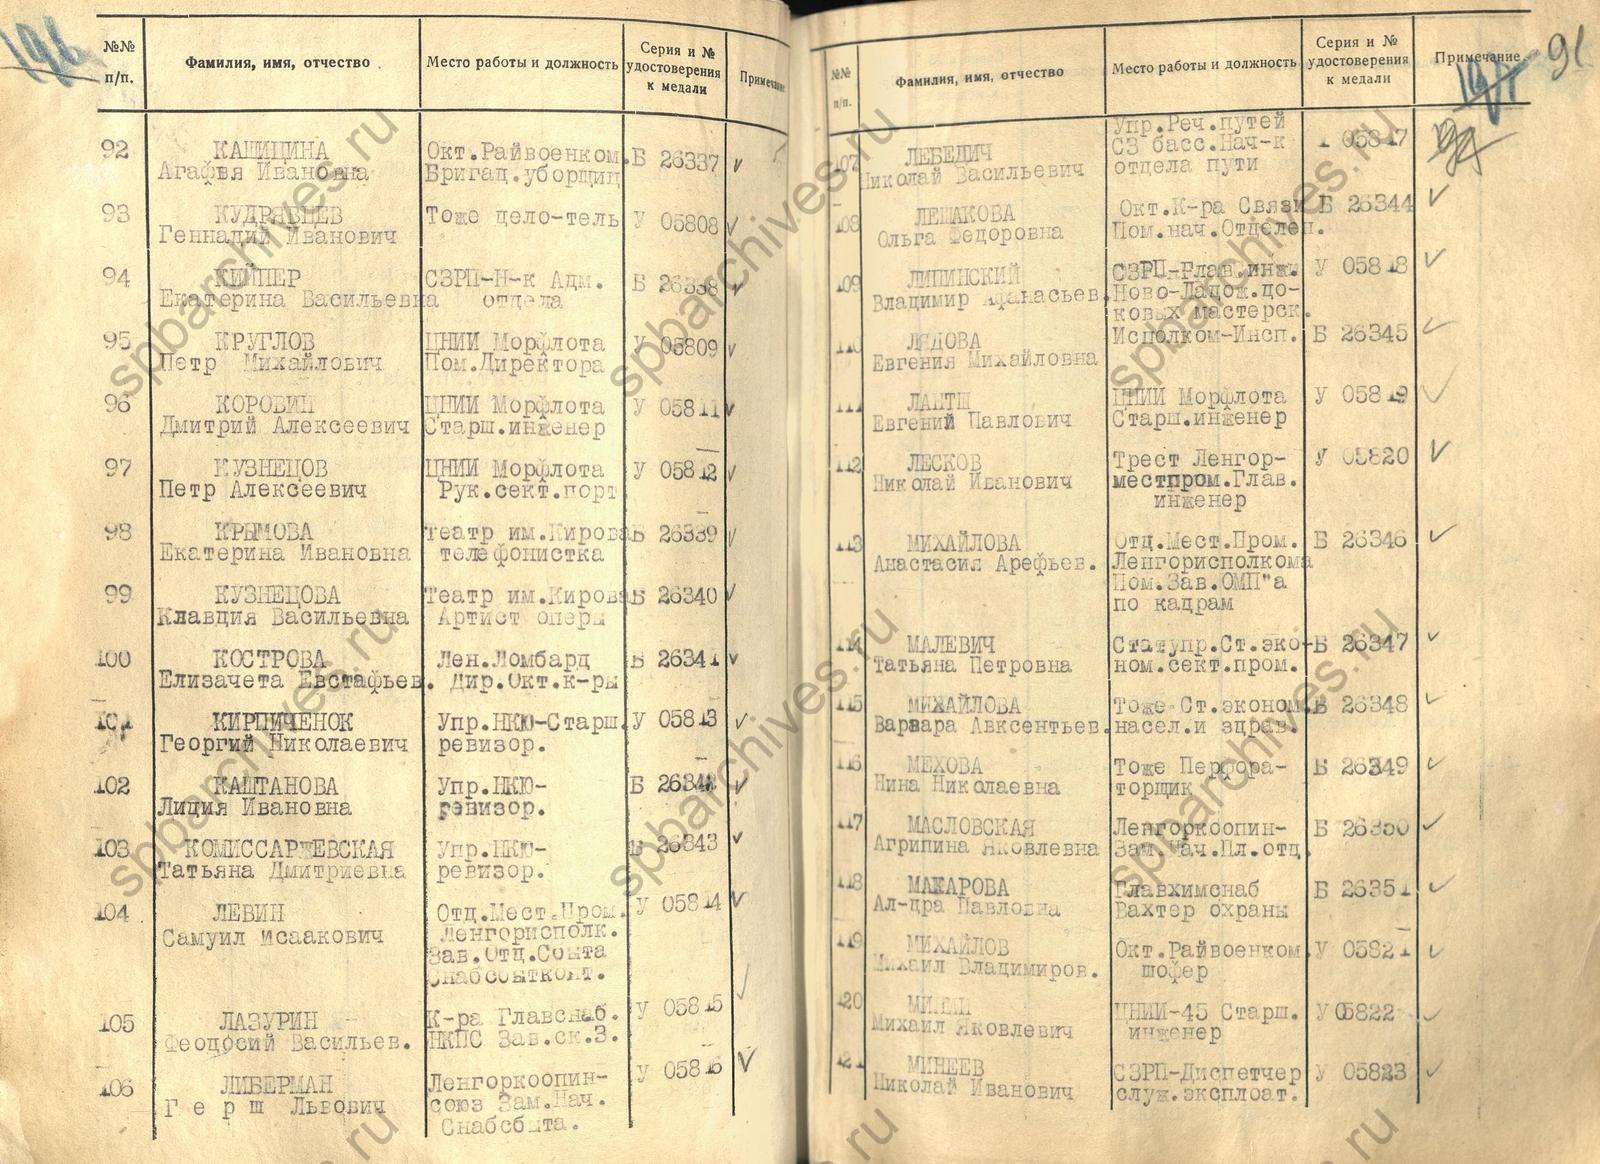 196
№№ п/п. Фамилия, имя, отчество Место работы и должность Серия и № удостоверения к медали Примечание
92 КАШИЦИНА Окт.Райвоенком. Б 26337
Агафья Ивановна Бригад.уборщиц
93 КУДРЯВЦЕВ Тоже дело-тель У 05808
Геннадий Иванович
94 КИЙПЕР СЗРП-Н-к Адм. Б 26338
Екатерина Васильевна отдела
95 КРУГЛОВ ЦНИИ Морфлота У 05809
Петр Михайлович Пом.Директора
96 КОРОВИН ЦНИИ Морфлота У 05811
Дмитрий Алексеевич Старш.инженер
97 КУЗНЕЦОВ ЦНИИ Морфлота У 05812
Петр Алексеевич Рук.сект.порт
98 КРЫМОВА Театр им.Кирова Б 26339
Екатерина Ивановна телефонистка
99 КУЗНЕЦОВА Театр им.Кирова Б 26340
Клавдия Васильевна Артист оперы
100 КОСТРОВА Лен.Ломбард Б 26341
Елизачета Евстафьев. Дир.Окт.к-ры
101 КИРПИЧЕНОК Упр.НКЮ-Старш. У 05813
Георгий Николаевич ревизор.
102 КАШТАНОВА Упр.НКЮ- Б 26342
Лидия Ивановна ревизор.
103 КОМИССАРЖЕВСКАЯ Упр.НКЮ- Б 26343
Татьяна Дмитриевна ревизор.
104 ЛЕВИН Отд.Мест.Пром. У 05814
Самуил Исаакович Ленгорисполк.
Зав.Отд.Сбыта
Снабсбыткопт.
105 ЛАЗУРИН К-ра Главснаб. У 05815
Феодосий Васильев. НКПС Зав.ск.3.
106 ЛИБЕРМАН Ленгоркоопин- У 05816
Г е р ш Львович союз Зам.Нач.
Снабсбыта.
91
№№ п/п. Фамилия, имя, отчество Место работы и должность Серия и № удостоверения к медали Примечание
Упр.Реч.путей
107 ЛЕБЕДИЧ СЗ басс.Нач-к 05817
Николай Васильевич отдела пути
108 ЛЕШАКОВА Окт.К-ра Связи Б 26344
Ольга Федоровна Пом.нач.Отделен.
109 ЛИПИНСКИЙ СЗРП-Глав.инж. У 05818
Владимир Афанасьев. Ново-Ладож.до-
ковых мастерск.
110 ЛЯДОВА Исполком-Инсп. Б 26345
Евгения Михайловна
111 ЦНИИ Морфлота У 05819
Евгений Павлович Старш.инженер
112 ЛЕСКОВ Трест Ленгор- У 05820
Николай Иванович местпром.Глав.
инженер
113 МИХАЙЛОВА Отд.Мест.Пром. Б 26346
Анастасия Арефьев. Ленгорисполкома
Пом.Зав.ОМП"а
по кадрам
114 МАЛЕВИЧ Статупр.Ст.эко- Б 26347
Татьяна Петровна ном.сект.пром.
115 МИХАЙЛОВА Тоже Ст.эконом. Б 26348
Варвара Авксентьев. насел.и здрав.
116 МЕХОВА Тоже Перфора- Б 26349
Нина Николаевна торщик
117 МАСЛОВСКАЯ Ленгоркоопин- Б 26350
Агрипина Яковлевна Зам.Нач.Пл.отд.
118 МАКАРОВА Главхимснаб Б 26351
Ал-дра Павловна Вахтер охраны
119 МИХАЙЛОВ Окт.Райвоенком. У 05821
Михаил Владимиров. шофер
120 ЦНИИ-45 Старш. У 05822
Михаил Яковлевич инженер
121 МИНЕЕВ СЗРП-Диспетчер У 05823
Николай Иванович служ.эксплоат.
spbarchives.ru